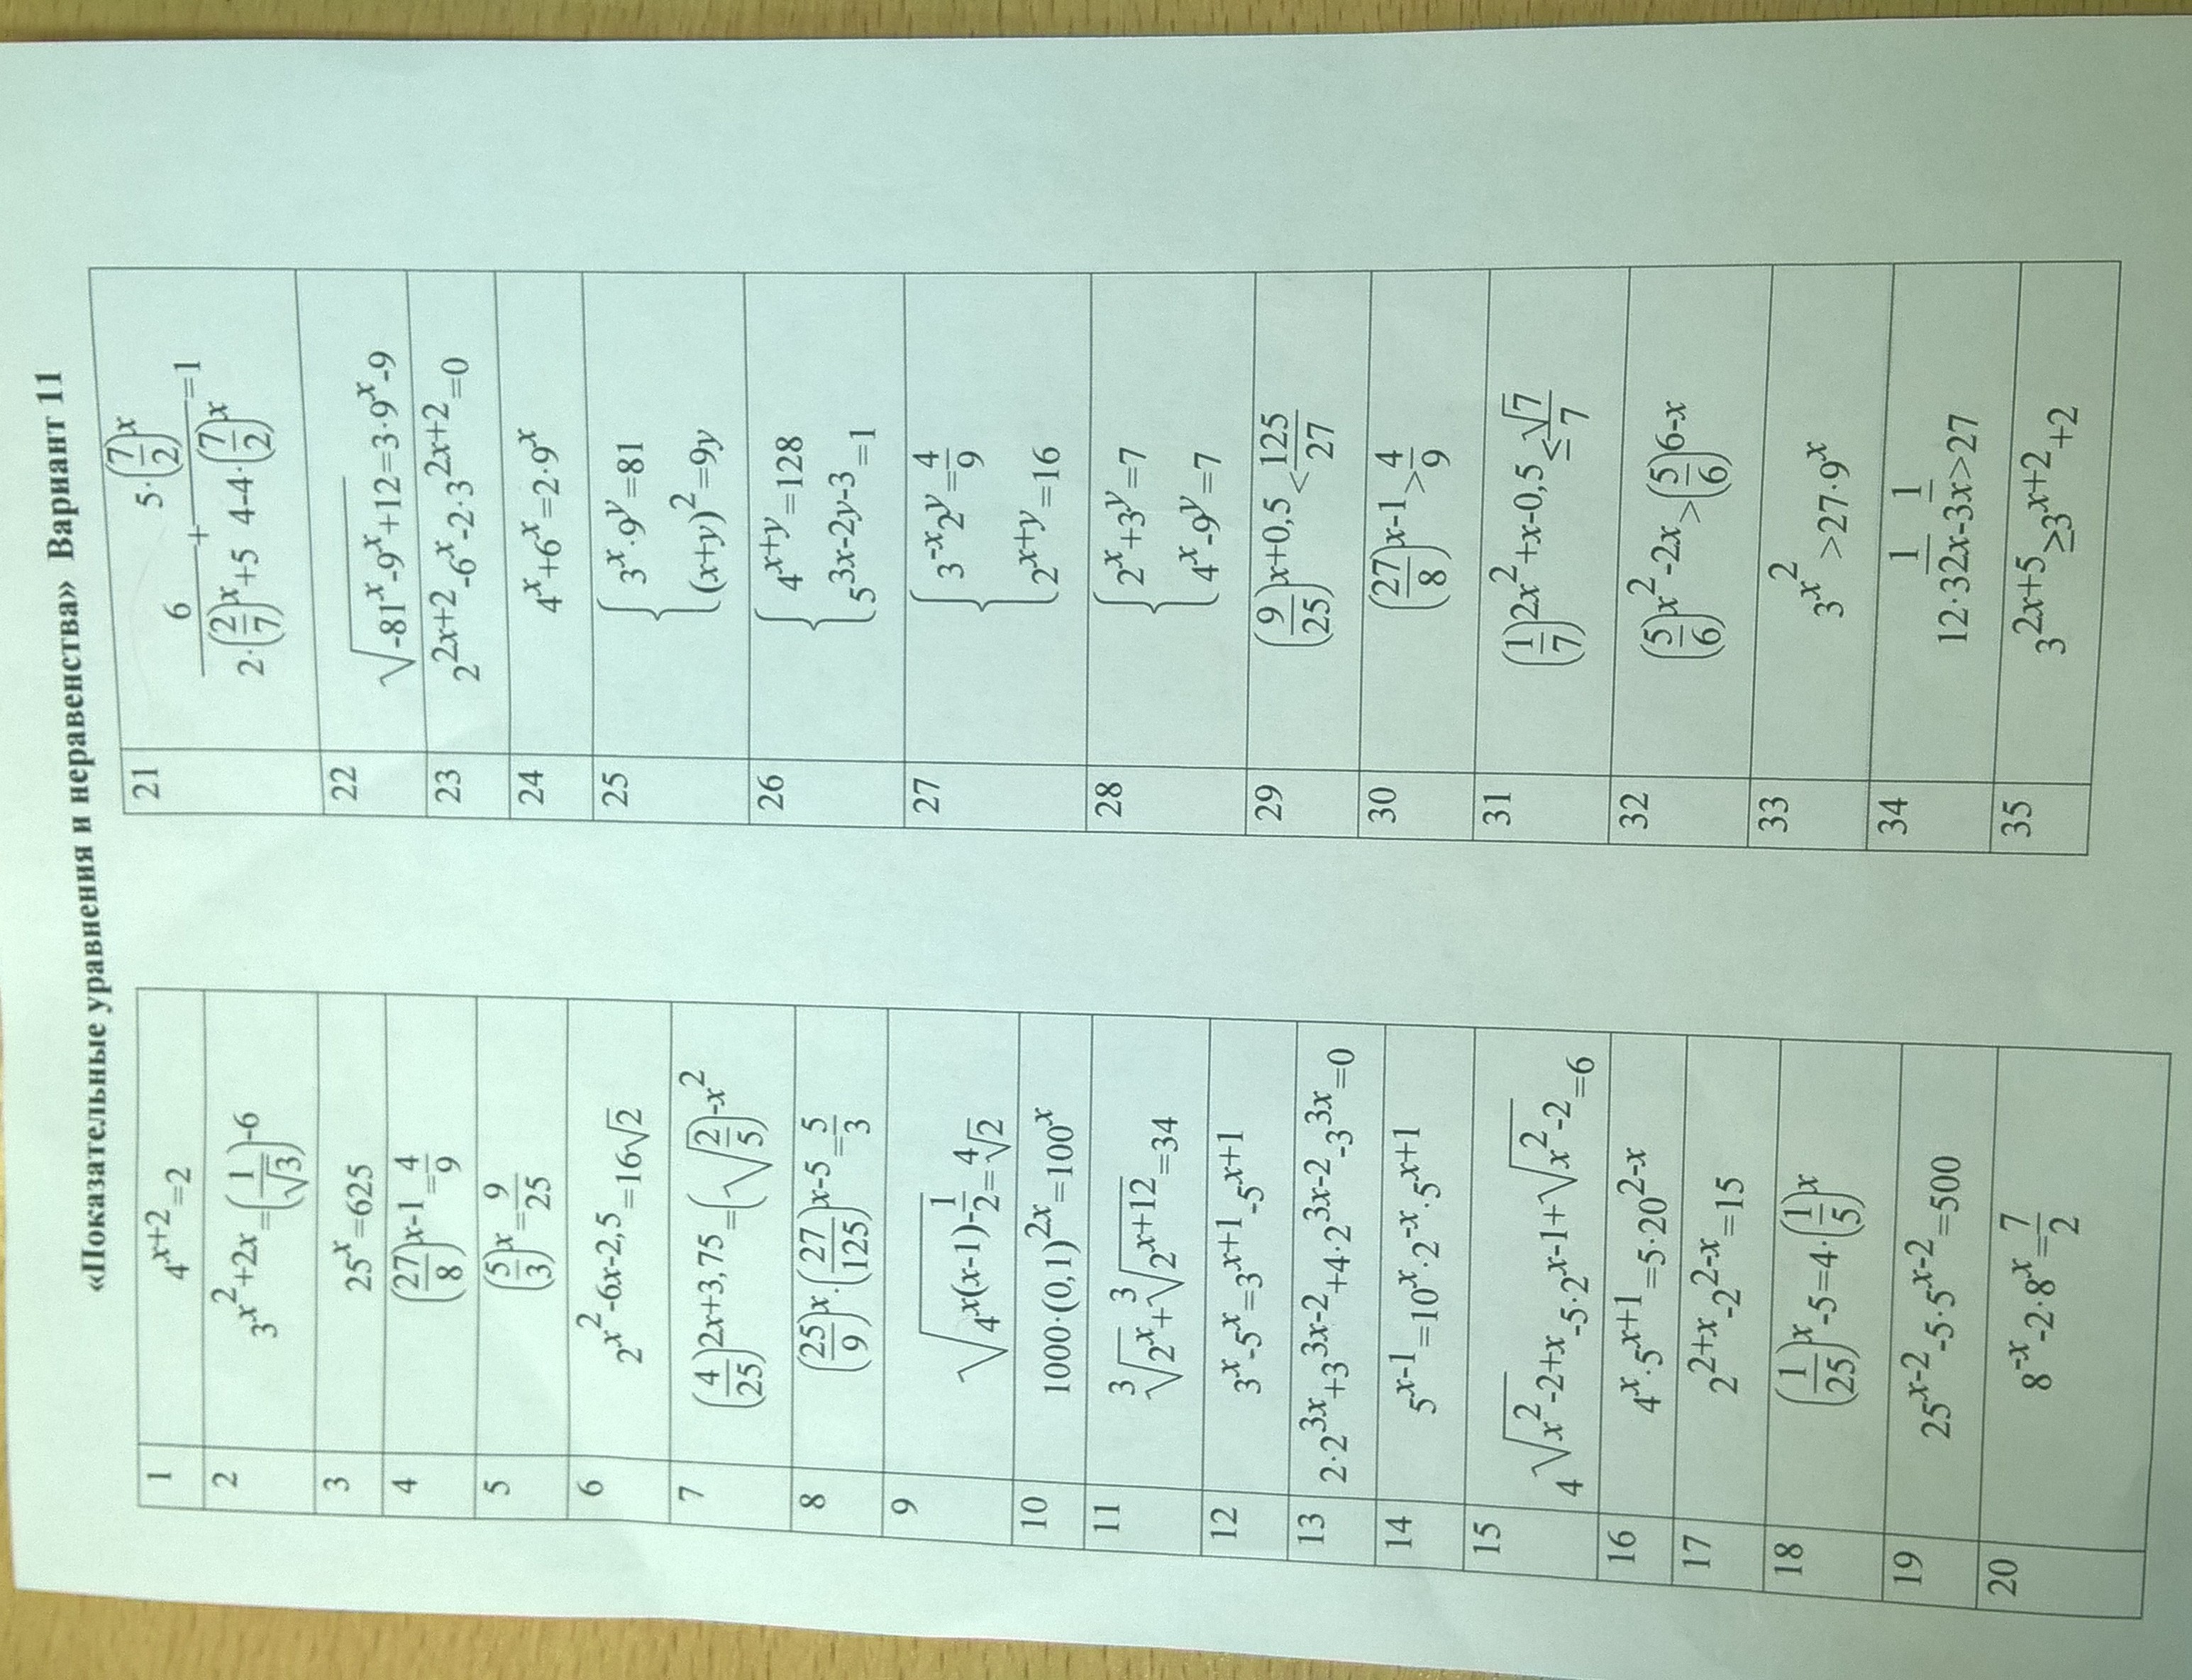 «Показательные уравнения и неравенства» Вариант 11
1 4^{x+2}=2
2 3^{x^2+2x}=(1/√3)^{-6}
3 25^x=625
4 (27/8)^{x-1}=4/9
5 (5/3)^x=9/25
6 2^{x^2-6x-2,5}=16√2
7 (4/25)^{2x+3,75}=(√(2/5))^{-x^2}
8 (25/9)^x·(27/125)^{x-5}=5/3
9 √(4^{x(x-1)-1/2})=⁴√2
10 1000·(0,1)^{2x}=100^x
11 ³√(2^x)+³√(2^{x+12})=34
12 3^x-5^x=3^{x+1}-5^{x+1}
13 2·2^{3x}+3^{3x-2}+4·2^{3x-2}-3^{3x}=0
14 5^{x-1}=10^x·2^{-x}·5^{x+1}
15 4^{√(x^2-2)+x}-5·2^{x-1+√(x^2-2)}=6
16 4^x·5^{x+1}=5·20^{2-x}
17 2^{2+x}-2^{2-x}=15
18 (1/25)^x-5=4·(1/5)^x
19 25^{x-2}-5·5^{x-2}=500
20 8^{-x}-2·8^x=7/2
21 6/(2·(2/7)^x+5)+5·(7/2)^x/(4-4·(7/2)^x)=1
22 √(-81^x-9^x+12)=3·9^x-9
23 2^{2x+2}-6^x-2·3^{2x+2}=0
24 4^x+6^x=2·9^x
25 {3^x·9^y=81
(x+y)^2=9y
26 {4^{x+y}=128
5^{3x-2y-3}=1
27 {3^{-x}2^y=4/9
2^{x+y}=16
28 {2^x+3^y=7
4^x-9^y=7
29 (9/25)^{x+0,5}<125/27
30 (27/8)^{x-1}>4/9
31 (1/7)^{2x^2+x-0,5}≤√7/7
32 (5/6)^{x^2-2x}>(5/6)^{6-x}
33 3^{x^2}>27·9^x
34 12·3^{1/2x}-3^{1/x}>27
35 3^{2x+5}≥3^{x+2}+2